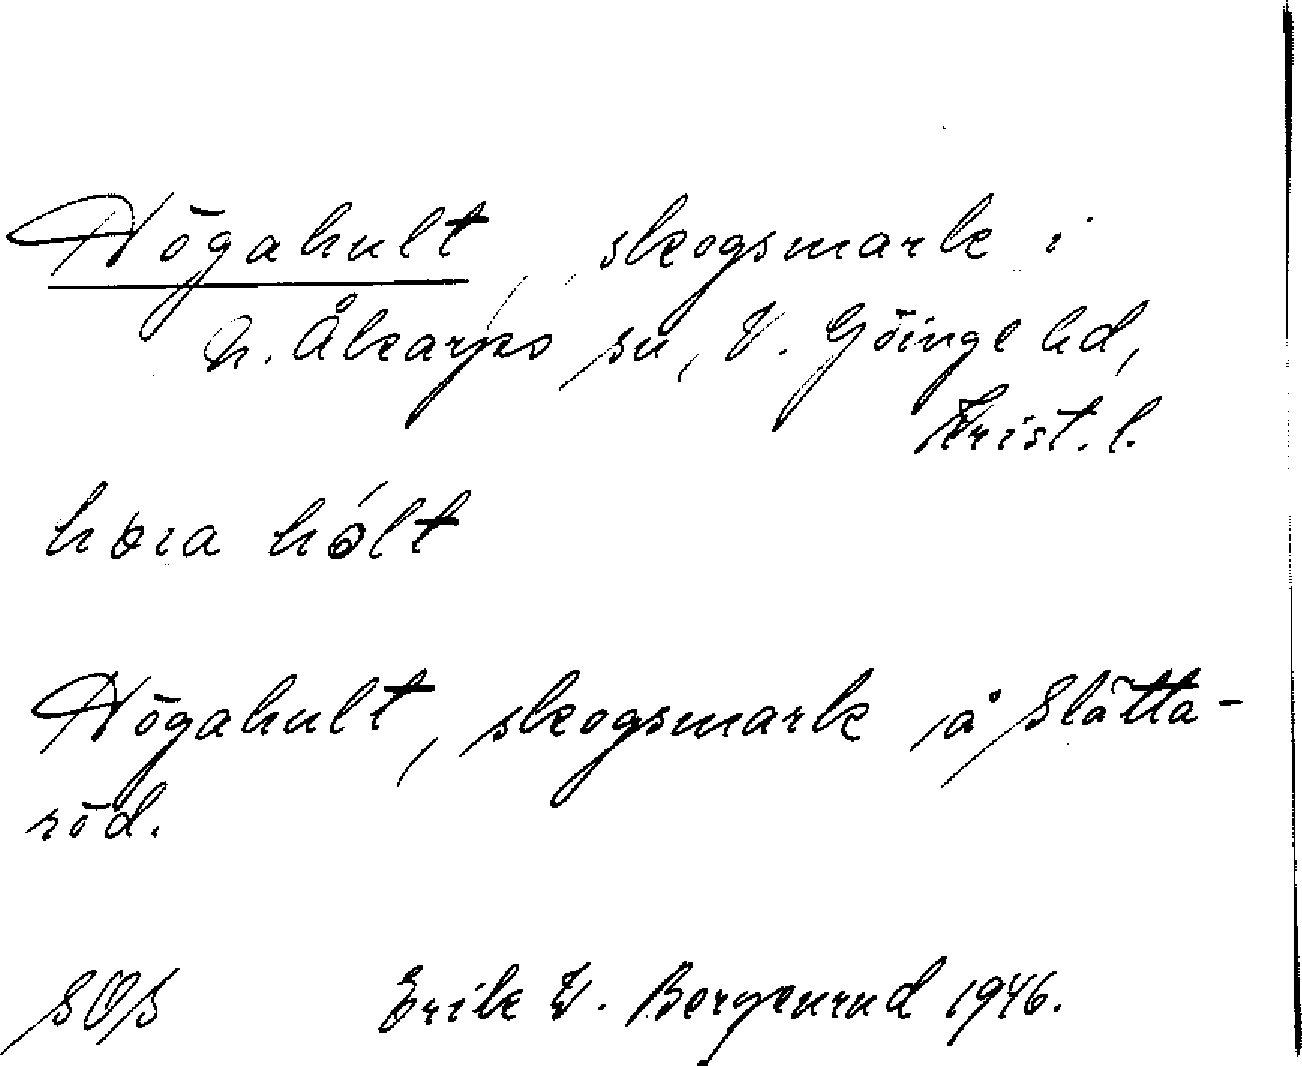 Högahult, skogsmark i
N. Åkarps sn, V. Göinge hd,
Krist. l.
høıa hólt
Högahult, skogsmark å Slätta-
röd.
SOS Erik W. Bergenrud 1946.